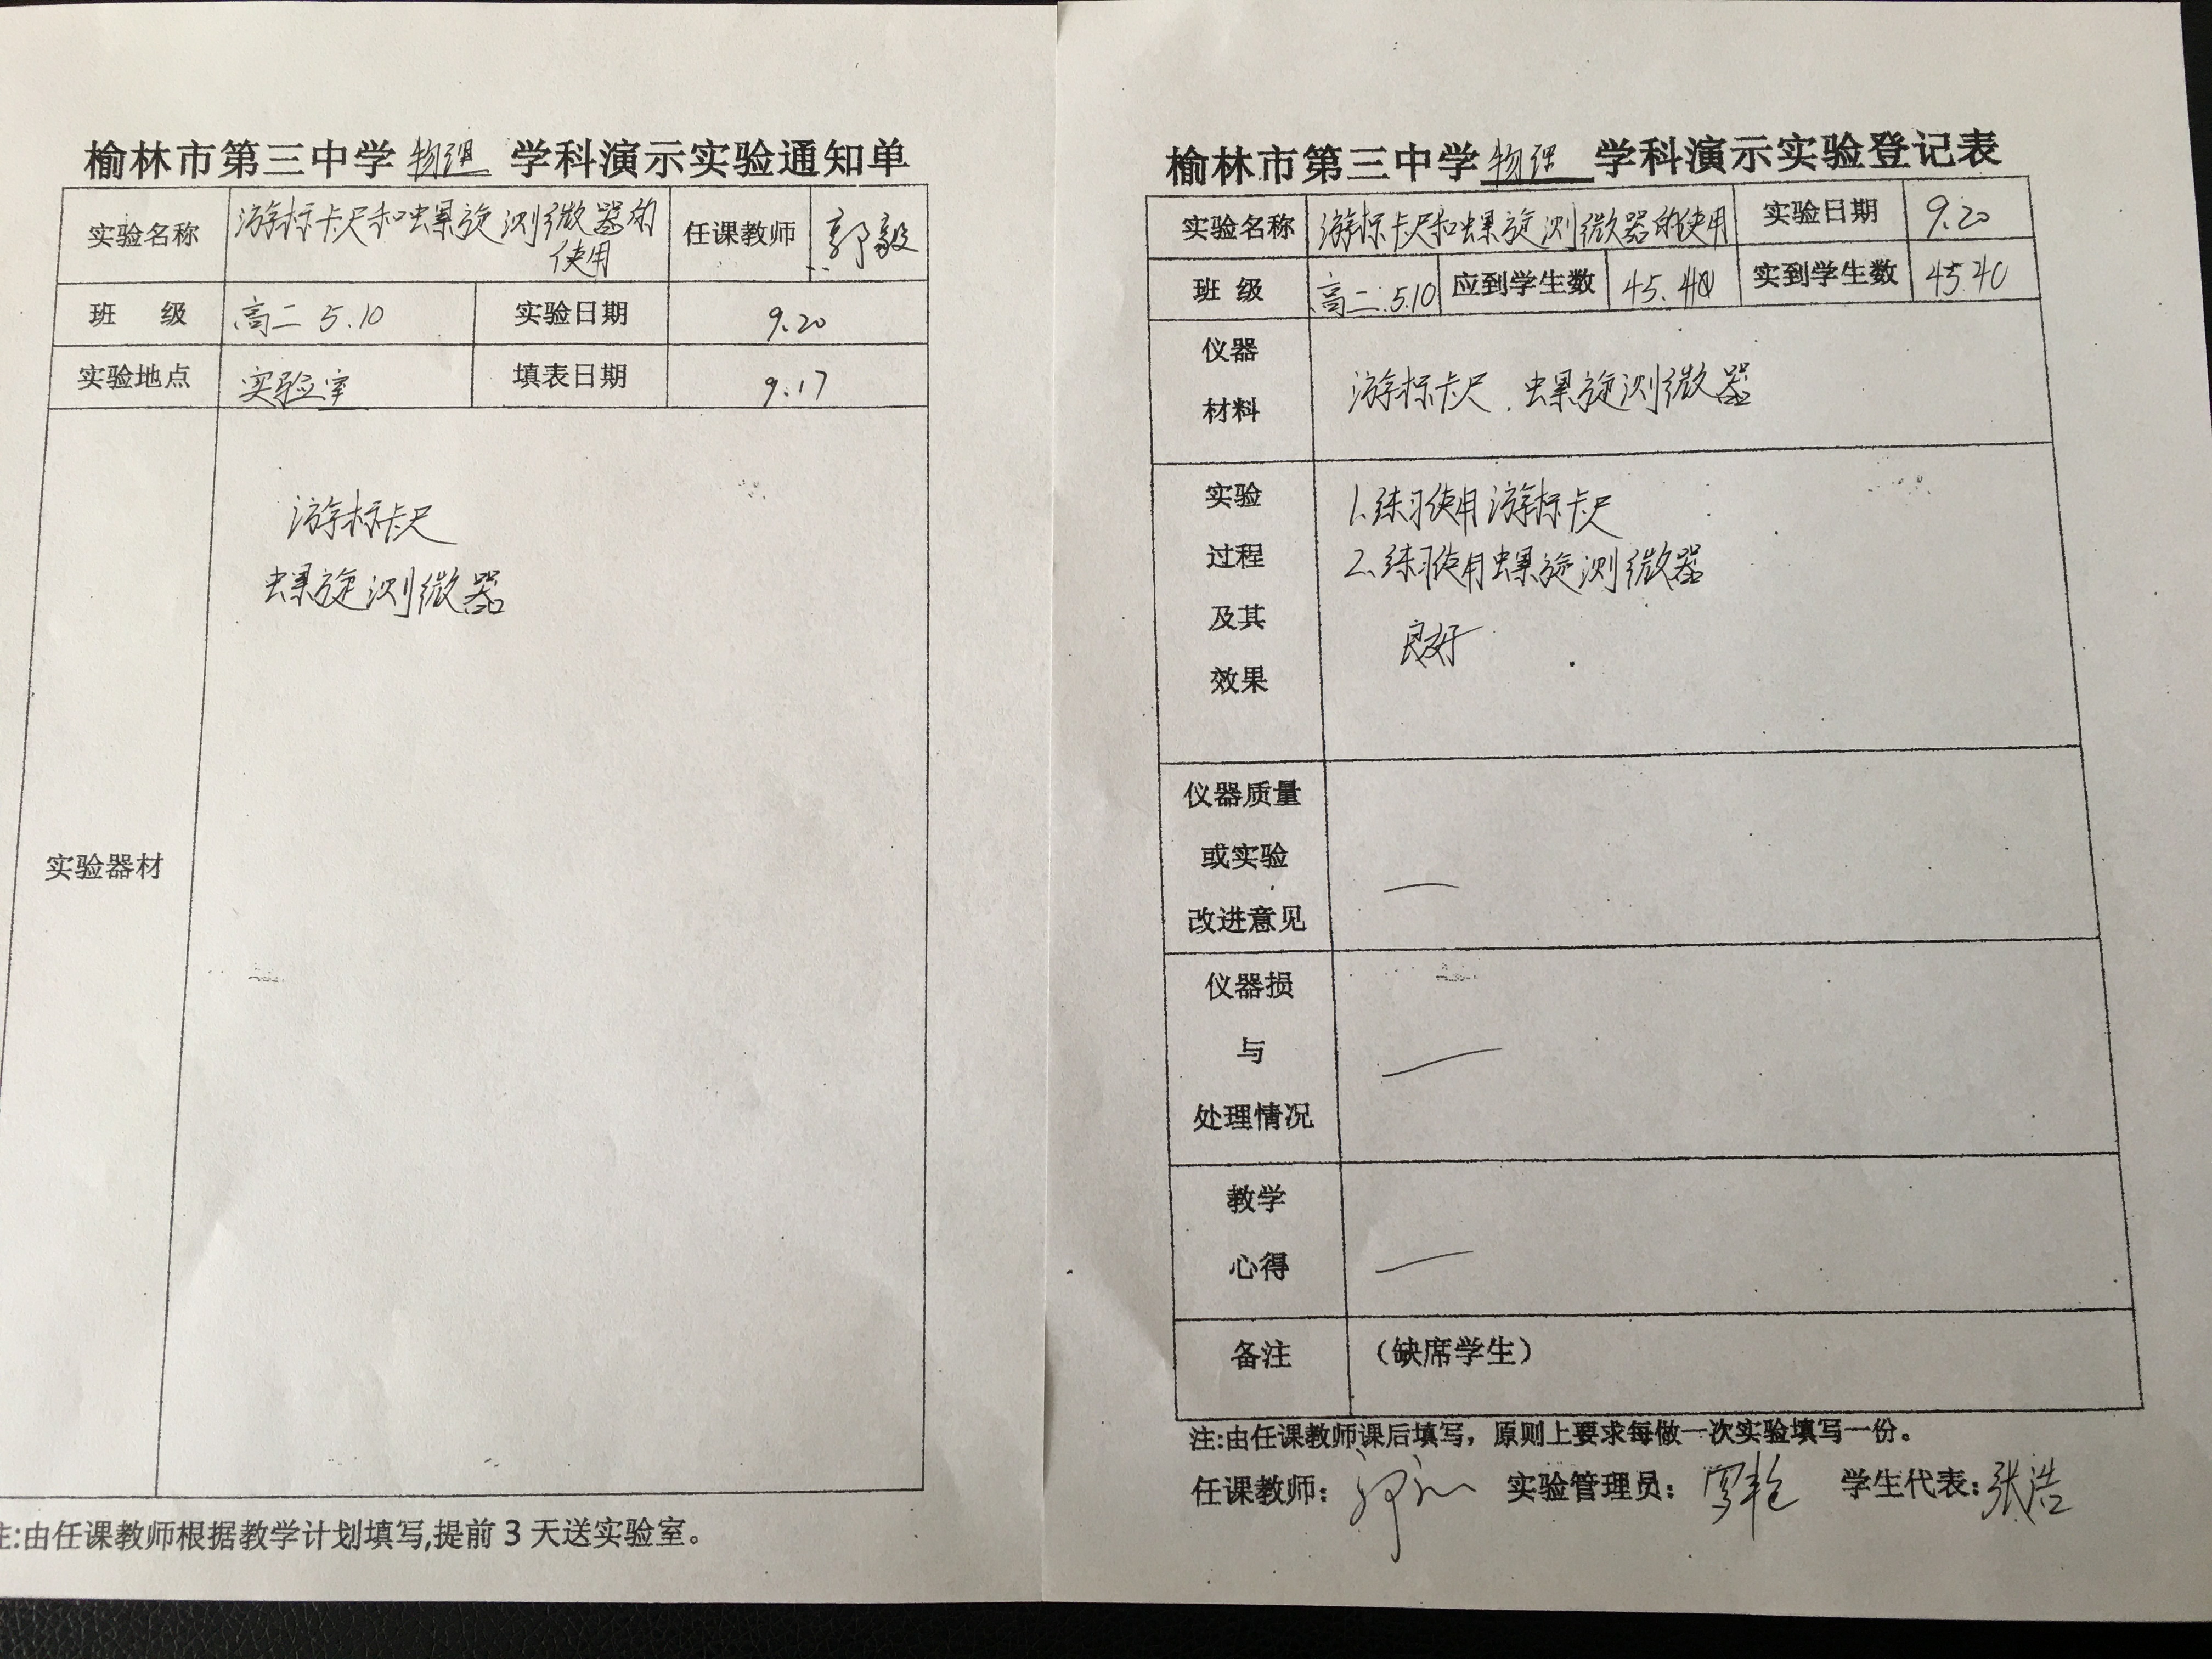 榆林市第三中学物理 学科演示实验通知单
实验名称 游标卡尺和螺旋测微器的使用 任课教师 郭毅
班 级 高二 5.10 实验日期 9.20
实验地点 实验室 填表日期 9.17
实验器材
游标卡尺
螺旋测微器
注:由任课教师根据教学计划填写,提前 3 天送实验室。
榆林市第三中学物理 学科演示实验登记表
实验名称 游标卡尺和螺旋测微器的使用 实验日期 9.20
班 级 高二.5.10 应到学生数 45.40 实到学生数 45.40
仪器
材料
游标卡尺.螺旋测微器
实验
过程
及其
效果
1.练习使用游标卡尺
2.练习使用螺旋测微器
良好
仪器质量
或实验
改进意见
—
仪器损
与
处理情况
—
教学
心得
—
备注 （缺席学生）
注:由任课教师课后填写，原则上要求每做一次实验填写一份。
任课教师: 实验管理员: 学生代表:张浩